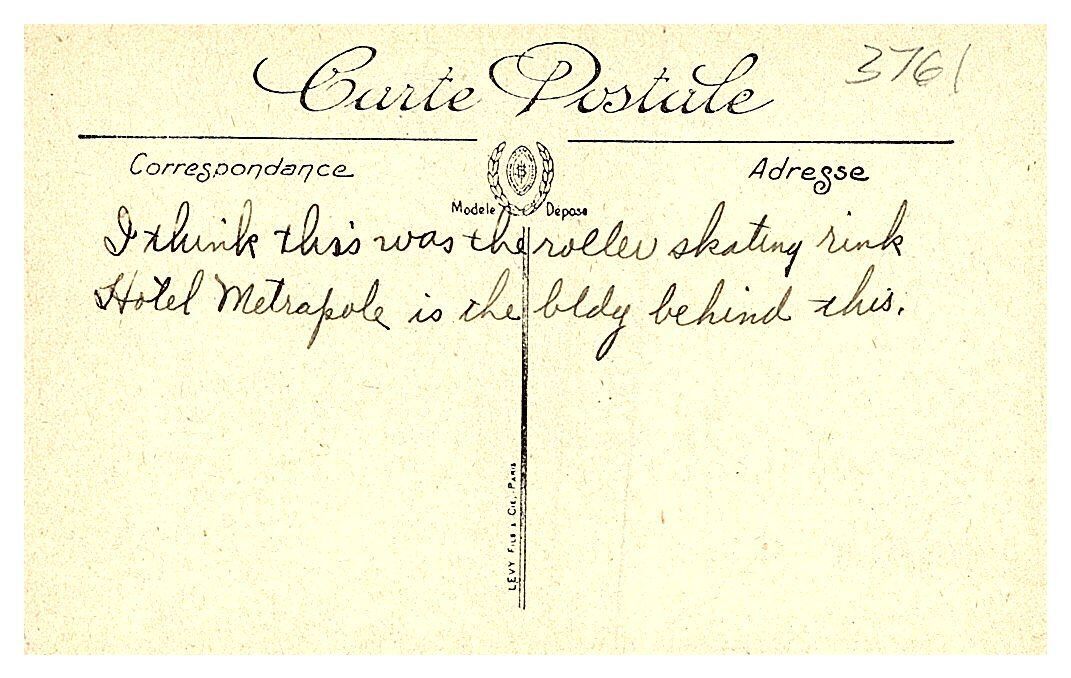 Carte Postale
3761
Correspondance
Adresse
Modèle Déposé
I think this was the roller skating rink
Hotel Metrapole is the bldg behind this.
LEVY FILS & CIE, PARIS